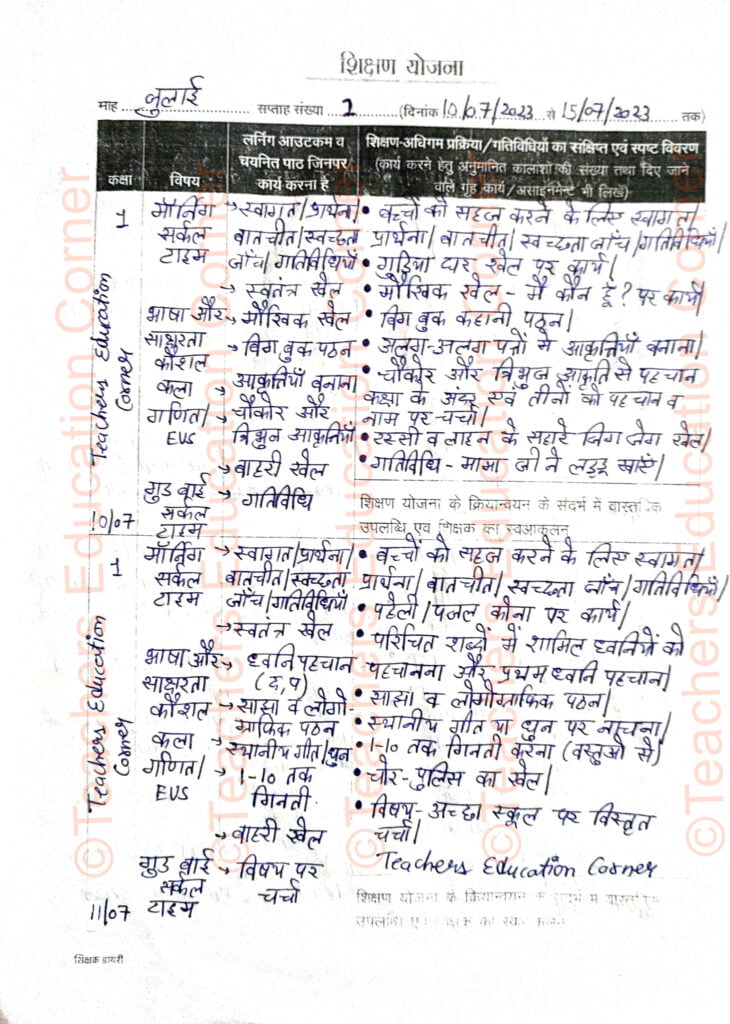 शिक्षण योजना
माह जुलाई सप्ताह संख्या 2 (दिनांक 10/07/2023 से 15/07/2023 तक)
कक्षा
विषय
लर्निंग आउटकम व
चयनित पाठ जिनपर
कार्य करना है
शिक्षण-अधिगम प्रक्रिया/गतिविधियों का संक्षिप्त एवं स्पष्ट विवरण
(कार्य करने हेतु अनुमानित कालांशों की संख्या तथा दिए जाने
वाले गृह कार्य/असाइनमेन्ट भी लिखें)
1
मॉर्निंग
सर्कल
टाइम
भाषा और
साक्षरता
कौशल
कला
गणित/
EVS
गुड बाई
सर्कल
टाइम
10/07
→ स्वागत/प्रार्थना/
बातचीत/स्वच्छता
जाँच/गतिविधियाँ
→ स्वतंत्र खेल
→ मौखिक खेल
→ बिग बुक पठन
→ आकृतियाँ बनाना/
→ चौकोर और
त्रिभुज आकृतियाँ
→ बाहरी खेल
→ गतिविधि
• बच्चों को सहज करने के लिए स्वागत/
प्रार्थना/बातचीत/स्वच्छता जाँच/गतिविधियाँ/
• गुड़िया घर खेल पर कार्य।
• मौखिक खेल - मैं कौन हूँ? पर कार्य
• बिग बुक कहानी पठन।
• अलग-अलग पत्तों से आकृत्तियाँ बनाना।
• चौकोर और त्रिभुज आकृति से पहचान
कक्षा के अंदर एवं तीनों की पहचान व
नाम पर चर्चा।
• रस्सी व लाइन के सहारे जिग जेग खेल/
• गतिविधि - मामा जी ने लड्डू खाएँ/
शिक्षण योजना के क्रियान्वयन के संदर्भ में वास्तविक
उपलब्धि एवं शिक्षक का स्वआकलन
1
मॉर्निंग
सर्कल
टाइम
भाषा और
साक्षरता
कौशल
कला
गणित/
EVS
गुड बाई
सर्कल
टाइम
11/07
→ स्वागत/प्रार्थना/
बातचीत/स्वच्छता
जाँच/गतिविधियाँ
→ स्वतंत्र खेल
→ ध्वनि पहचान
→ साझा व लोगो-
ग्राफिक पठन
→ स्थानीय गीत/धुन
→ 1-10 तक
गिनती
→ बाहरी खेल
→ विषय पर
चर्चा
• बच्चों को सहज करने के लिए स्वागत/
प्रार्थना/बातचीत/स्वच्छता जाँच/गतिविधियाँ/
• पहेली/पजल कोना पर कार्य।
• परिचित शब्दों में शामिल ध्वनियों को
पहचानना और प्रथम ध्वनि पहचान।
• साझा व लोगोग्राफिक पठन।
• स्थानीय गीत या धुन पर नाचना।
• 1-10 तक गिनती करना (वस्तुओं से)
• चोर-पुलिस का खेल।
• विषय - अच्छा स्कूल पर विस्तृत
चर्चा।
Teachers Education Corner
शिक्षण योजना के क्रियान्वयन के संदर्भ में वास्तविक
शिक्षक डायरी
Teachers Education
Corner
Teachers Education
Corner
©Teachers Education Corner
©Teachers Education Corner
©Teachers Education Corner
©Teachers Education Corner